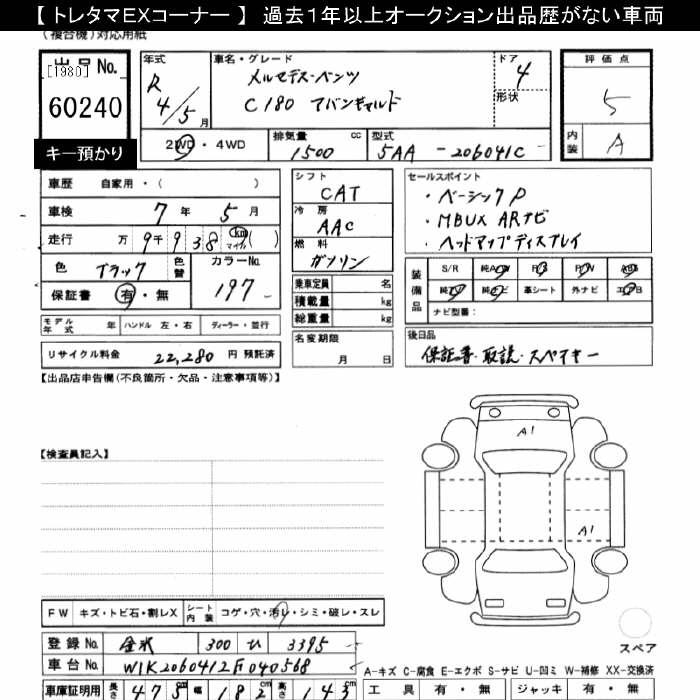 【 トレタマEXコーナー 】 過去1年以上オークション出品歴がない車両
(複合機)対応用紙
出品No.
[1980]
60240
キー預かり
年式
R 4/5 月
車名・グレード
メルセデスベンツ
C180 アバンギャルド
ドア
4
形状
2WD・4WD
排気量 cc
1500
型式
5AA-206041C
評価点
5
内装
A
車歴 自家用・( )
車検 7年 5月
走行 万 9千 9 3 8 km マイル( )
色 ブラック 色替
カラーNo.
197
保証書 有・無
シフト
CAT
冷房
AAC
燃料
ガソリン
乗車定員 名
積載量 kg
総重量 kg
セールスポイント
・ベーシックP
・MBUX ARナビ
・ヘッドアップディスプレイ
装備品
S/R 純AW P/S P/W ABS
純TV 純ナビ 革シート 外ナビ エアB
ナビ型番:
モデル年式 年 ハンドル 左・右 ディーラー・並行
リサイクル料金 22,280 円 預託済
名変期限
月 日
後日品
保証書・取説・スペアキー
【出品店申告欄(不良箇所・欠品・注意事項等)】
【検査員記入】
A1
A1
FW キズ・トビ石・割レX シート内装 コゲ・穴・汚レ・シミ・破レ・スレ
スペア
登録No. 金沢 300 ひ 3395
車台No. W1K2060412F040568
A-キズ C-腐食 E-エクボ S-サビ U-凹ミ W-補修 XX-交換済
車庫証明用 長さ 475 cm 幅 182 cm 高さ 143 cm
工具 有・無 ジャッキ 有・無